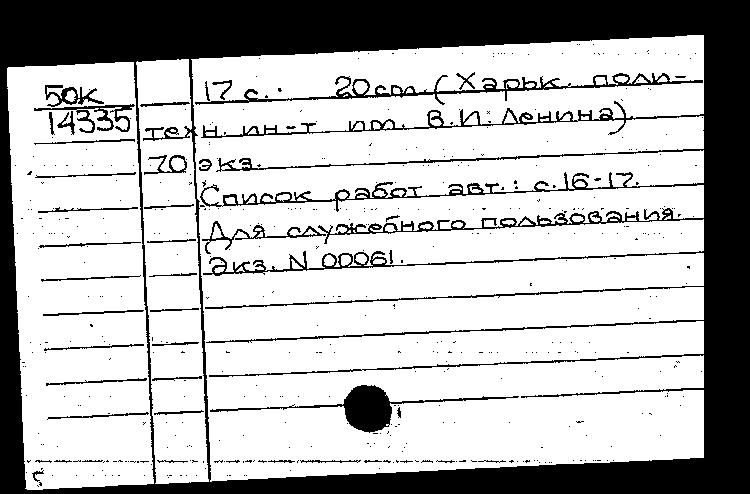 50К 17 с. 20 ст. (Харьк. поли-
14335 техн. ин-т им. В.И. Ленина)
70 экз.
Список работ авт.: с.16-17.
Для служебного пользования.
Экз. N 00061.